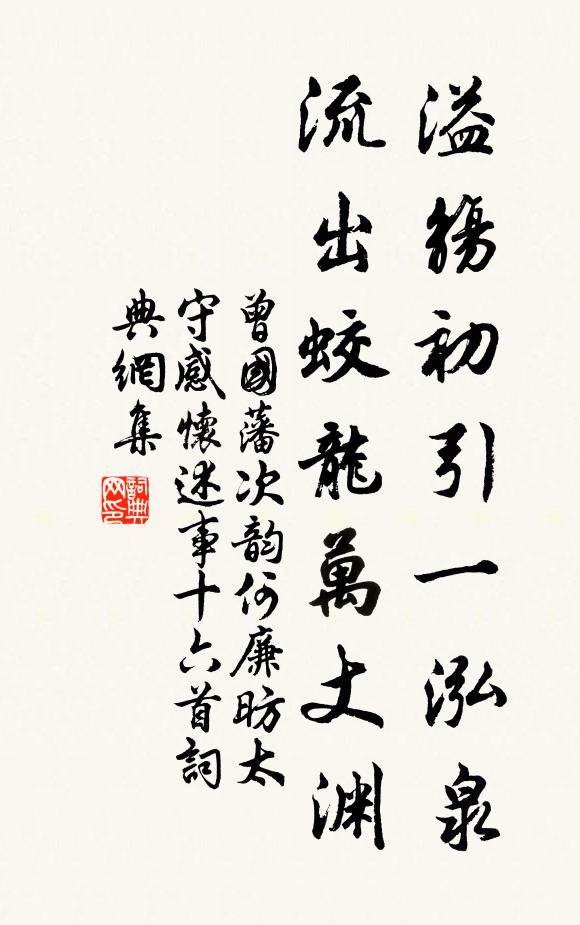 溢觴初引一泓泉
流出蛟龍萬丈淵
曾國藩次韵何廉昉太
守感懷述事十六首詞
典網集
詞典
网印